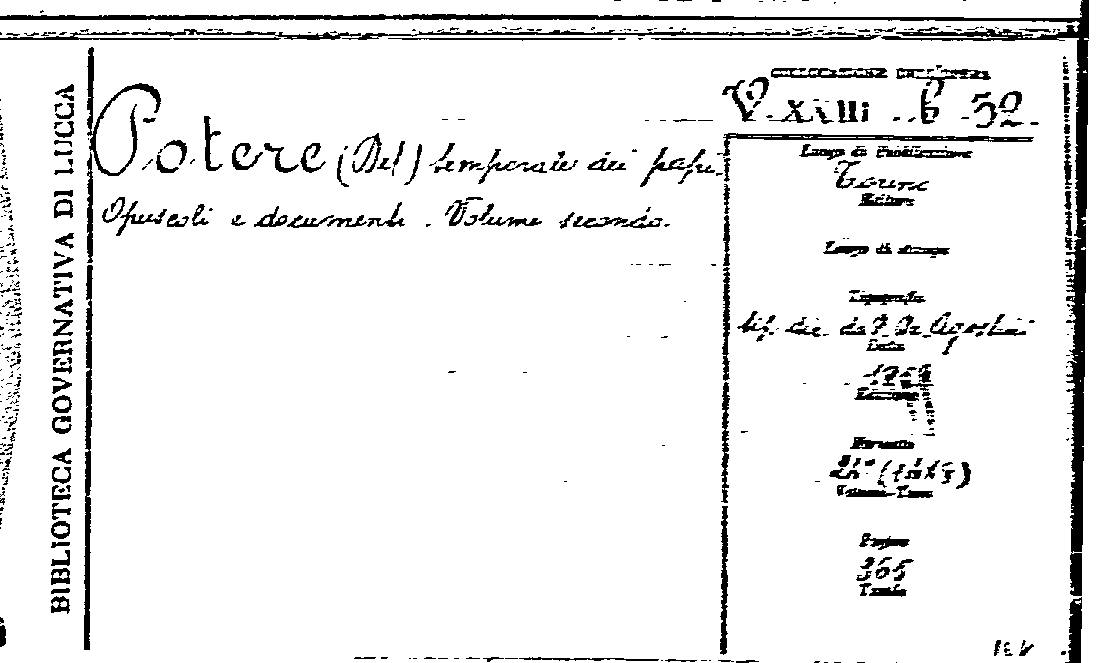 BIBLIOTECA GOVERNATIVA DI LUCCA
Potere (Del) temporale dei papi.
Opuscoli e documenti. Volume secondo.
COLLOCAZIONE
V. XXIII. b. 32.
Luogo di Pubblicazione
Torino
Editore
Luogo di stampa
Tipografia
tip. dir. da P. De Agostini
Data
Edizione
Formato
24° (
Pagine
365
Tavole